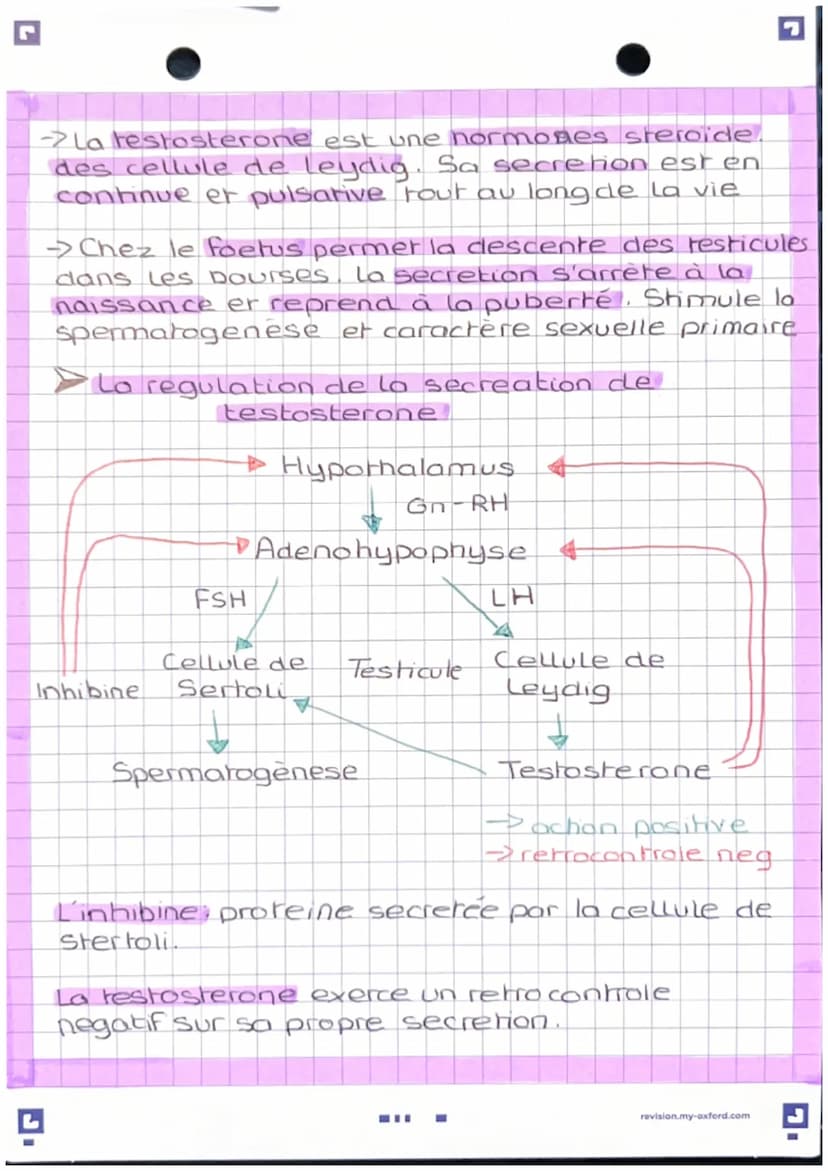 → La testosterone est une hormones steroide
des cellule de leydig. Sa secretion est en
continue et pulsative tout au long de la vie
→ Chez le foetus permet la descente des testicules
dans les bourses. La secretion s'arrète à la
naissance et reprend à la puberté. Stimule la
spermatogenèse et caractère sexuelle primaire
➤ La regulation de la secreation de
testosterone
Hypothalamus
Gn-RH
Adenohypophyse
FSH
LH
Cellule de
Sertoli
Testicule
Cellule de
Leydig
Inhibine
Spermatogènese
Testosterone
→ action positive
→ retrocontrole neg
L'inhibine: proteine secretée par la cellule de
stertoli.
La testosterone exerce un retrocontrole
negatif sur sa propre secretion.
revision.my-oxford.com